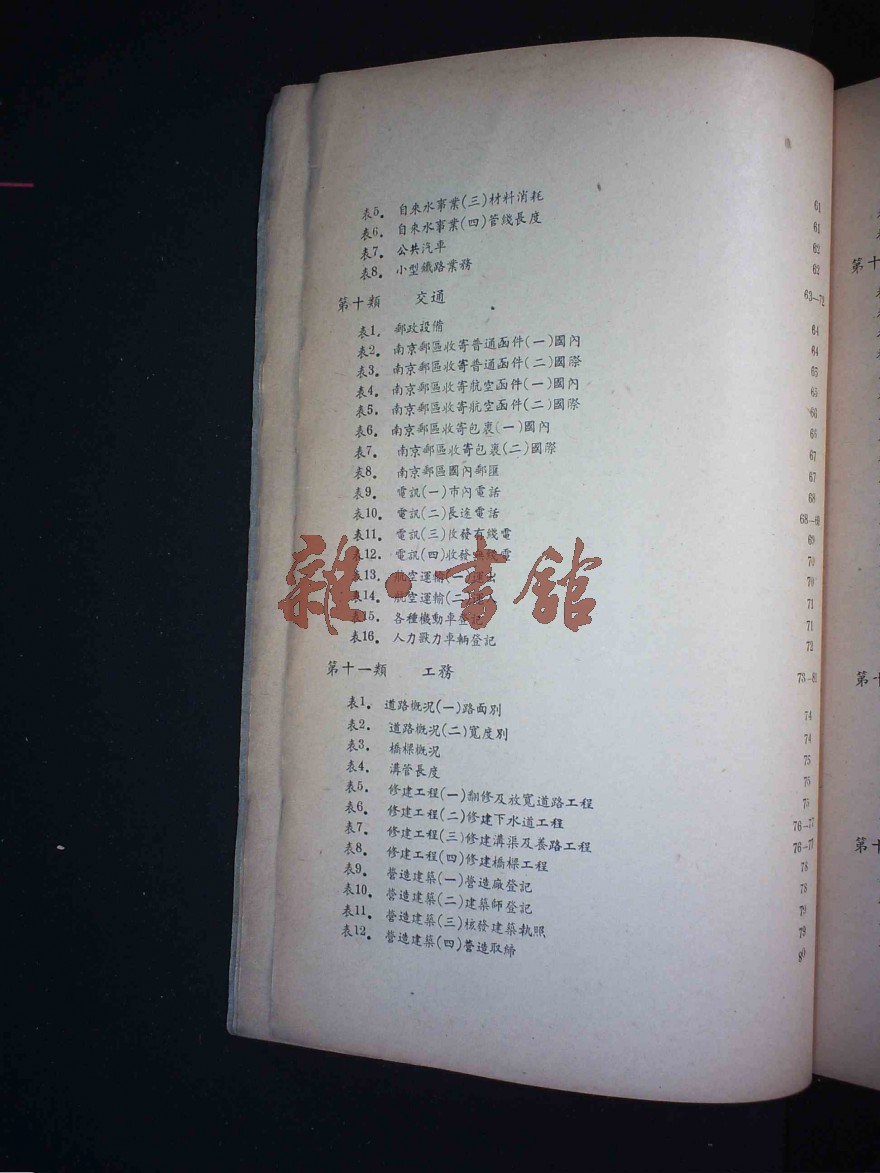 表5. 自來水事業(三)材料消耗 61
表6. 自來水事業(四)管綫長度 61
表7. 公共汽車 62
表8. 小型鐵路業務 62
第十類 交通 63—72
表1. 郵政設備 64
表2. 南京郵區收寄普通函件(一)國內 64
表3. 南京郵區收寄普通函件(二)國際 65
表4. 南京郵區收寄航空函件(一)國內 65
表5. 南京郵區收寄航空函件(二)國際 66
表6. 南京郵區收寄包裹(一)國內 66
表7. 南京郵區收寄包裹(二)國際 67
表8. 南京郵區國內郵匯 67
表9. 電訊(一)市內電話 68
表10. 電訊(二)長途電話 68—69
表11. 電訊(三)收發有綫電 69
表12. 電訊(四)收發無綫電 70
表13. 航空運輸(一)運出 70
表14. 航空運輸(二)運入 71
表15. 各種機動車登記 71
表16. 人力獸力車輛登記 72
第十一類 工務 73—81
表1. 道路概況(一)路面別 74
表2. 道路概況(二)寬度別 74
表3. 橋樑概況 75
表4. 溝管長度 75
表5. 修建工程(一)翻修及放寬道路工程 75
表6. 修建工程(二)修建下水道工程 76—77
表7. 修建工程(三)修建溝渠及養路工程 76—77
表8. 修建工程(四)修建橋樑工程 78
表9. 營造建築(一)營造廠登記 78
表10. 營造建築(二)建築師登記 79
表11. 營造建築(三)核發建築執照 79
表12. 營造建築(四)營造取締 80
雜·書館
第十
第十
第十